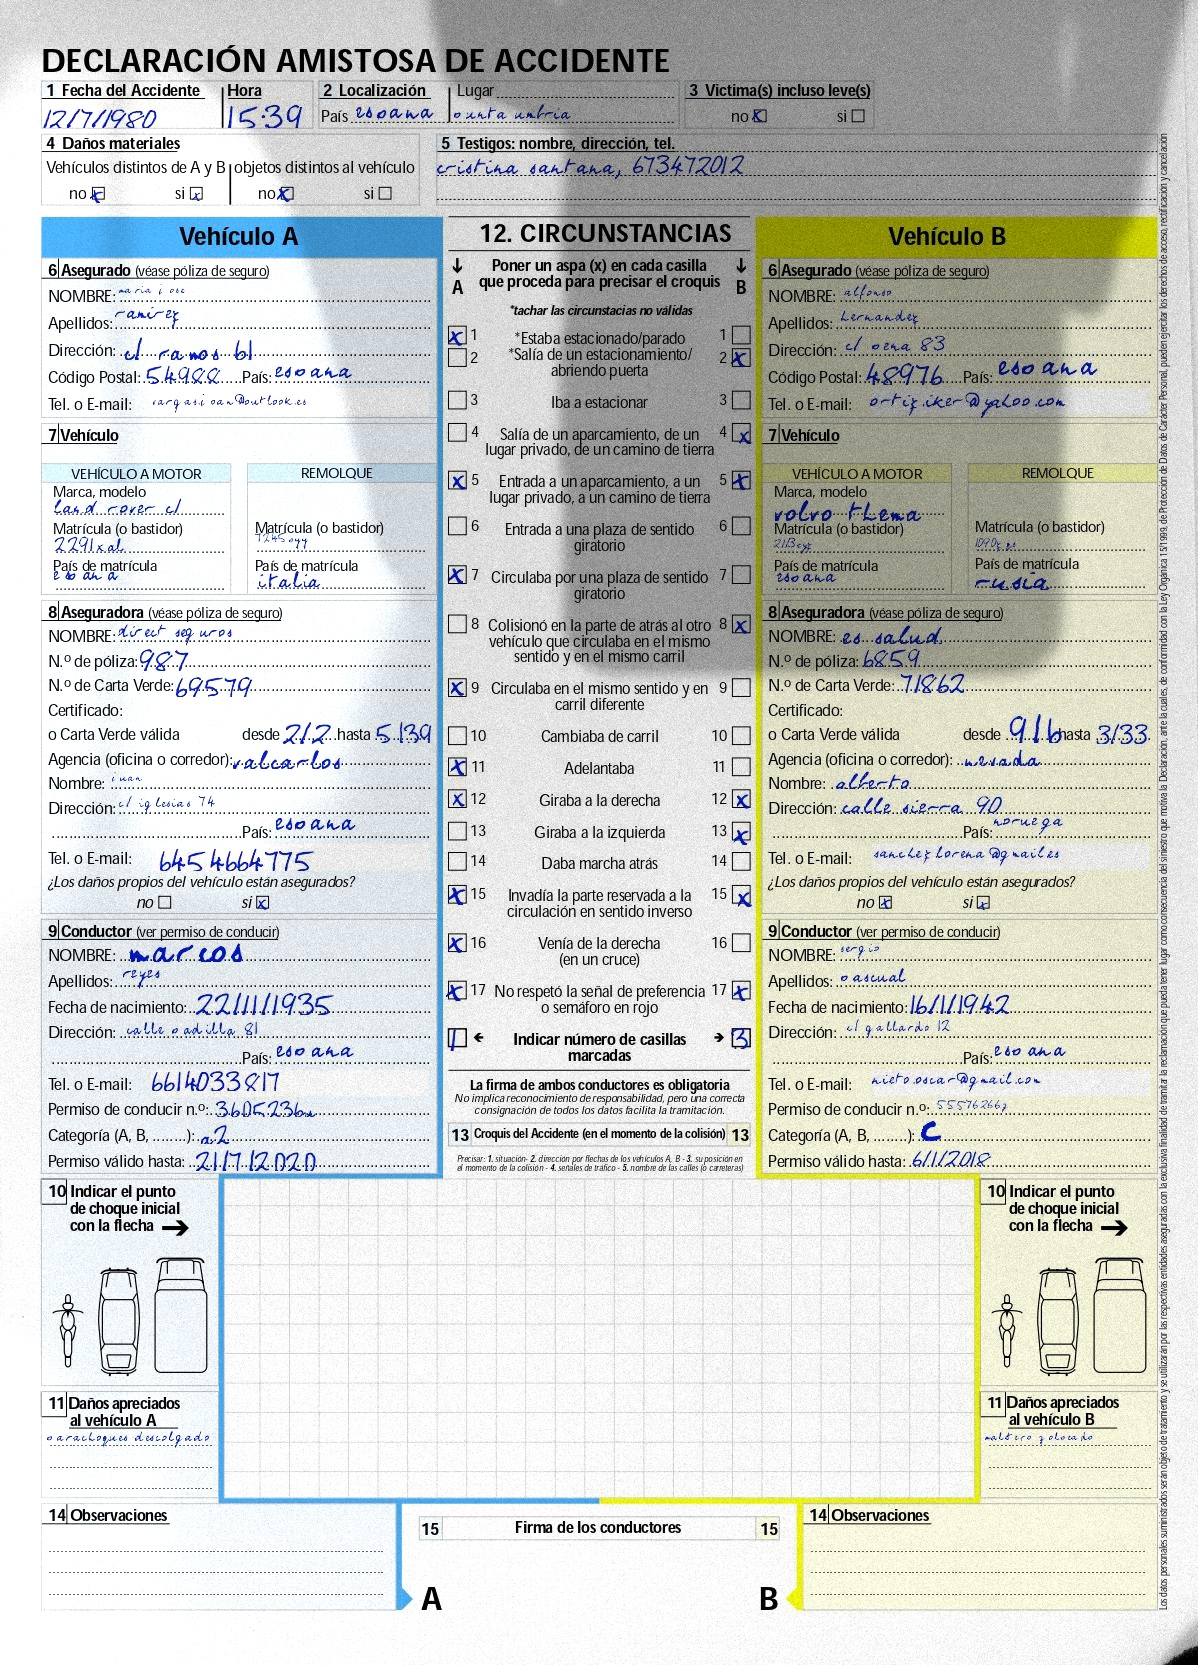 DECLARACIÓN AMISTOSA DE ACCIDENTE
1 Fecha del Accidente Hora 2 Localización Lugar 3 Victima(s) incluso leve(s)
12/7/1980 15:39 País espana punta umbria no x si
4 Daños materiales
Vehículos distintos de A y B objetos distintos al vehículo
no x si x no x si
5 Testigos: nombre, dirección, tel.
cristina santana, 673472012
Vehículo A
6 Asegurado (véase póliza de seguro)
NOMBRE: maria jose
Apellidos: ramirez
Dirección: c/ ramos 61
Código Postal: 54988 País: espana
Tel. o E-mail: vargasjoan@outlook.es
7 Vehículo
VEHÍCULO A MOTOR REMOLQUE
Marca, modelo
land rover cl
Matrícula (o bastidor) Matrícula (o bastidor)
2291xal 7245oyy
País de matrícula País de matrícula
espana italia
8 Aseguradora (véase póliza de seguro)
NOMBRE: direct seguros
N.º de póliza: 987
N.º de Carta Verde: 69579
Certificado:
o Carta Verde válida desde 2/2 hasta 5/39
Agencia (oficina o corredor): valcarlos
Nombre: juan
Dirección: c/ iglesias 74
País: espana
Tel. o E-mail: 6454664775
¿Los daños propios del vehículo están asegurados?
no si x
9 Conductor (ver permiso de conducir)
NOMBRE: marcos
Apellidos: reyes
Fecha de nacimiento: 22/11/1935
Dirección: calle padilla 81
País: espana
Tel. o E-mail: 6614033817
Permiso de conducir n.º: 3605236
Categoría (A, B, ........): a2
Permiso válido hasta: 21/7/2020
12. CIRCUNSTANCIAS
A Poner un aspa (x) en cada casilla que proceda para precisar el croquis B
*tachar las circunstacias no válidas
x 1 *Estaba estacionado/parado 1
2 *Salía de un estacionamiento/ abriendo puerta 2 x
3 Iba a estacionar 3
4 Salía de un aparcamiento, de un lugar privado, de un camino de tierra 4 x
x 5 Entrada a un aparcamiento, a un lugar privado, a un camino de tierra 5 x
6 Entrada a una plaza de sentido giratorio 6
x 7 Circulaba por una plaza de sentido giratorio 7
8 Colisionó en la parte de atrás al otro vehículo que circulaba en el mismo sentido y en el mismo carril 8 x
x 9 Circulaba en el mismo sentido y en carril diferente 9
10 Cambiaba de carril 10
x 11 Adelantaba 11
x 12 Giraba a la derecha 12 x
13 Giraba a la izquierda 13 x
14 Daba marcha atrás 14
x 15 Invadía la parte reservada a la circulación en sentido inverso 15 x
x 16 Venía de la derecha (en un cruce) 16
x 17 No respetó la señal de preferencia o semáforo en rojo 17 x
1 Indicar número de casillas marcadas 3
La firma de ambos conductores es obligatoria
No implica reconocimiento de responsabilidad, pero una correcta
consignación de todos los datos facilita la tramitación.
13 Croquis del Accidente (en el momento de la colisión) 13
Precisar: 1. situación- 2. dirección por flechas de los vehículos A, B - 3. su posición en
el momento de la colisión - 4. señales de tráfico - 5. nombre de las calles (o carreteras)
Vehículo B
6 Asegurado (véase póliza de seguro)
NOMBRE: alfonso
Apellidos: hernandez
Dirección: c/ pena 83
Código Postal: 48976 País: espana
Tel. o E-mail: ortiz.iker@yahoo.com
7 Vehículo
VEHÍCULO A MOTOR REMOLQUE
Marca, modelo
volvo thema
Matrícula (o bastidor) Matrícula (o bastidor)
País de matrícula País de matrícula
espana rusia
8 Aseguradora (véase póliza de seguro)
NOMBRE: es salud
N.º de póliza: 6859
N.º de Carta Verde: 71862
Certificado:
o Carta Verde válida desde 9/6 hasta 3/33
Agencia (oficina o corredor): nevada
Nombre: alberto
Dirección: calle sierra 90
País: noruega
Tel. o E-mail: sanchezlorena@gmail.es
¿Los daños propios del vehículo están asegurados?
no x si x
9 Conductor (ver permiso de conducir)
NOMBRE: sergio
Apellidos: pascual
Fecha de nacimiento: 16/1/1942
Dirección: c/ gallardo 12
País: espana
Tel. o E-mail: nieto.oscar@gmail.com
Permiso de conducir n.º: 55576266z
Categoría (A, B, ........): c
Permiso válido hasta: 6/1/2018
10 Indicar el punto de choque inicial con la flecha
11 Daños apreciados al vehículo A
parachoques descolgado
10 Indicar el punto de choque inicial con la flecha
11 Daños apreciados al vehículo B
14 Observaciones
15 Firma de los conductores 15
A B
14 Observaciones
Los datos personales suministrados serán objeto de tratamiento y se utilizarán por las respectivas entidades aseguradas con la exclusiva finalidad de tramitar la reclamación que pueda tener lugar como consecuencia del siniestro que motiva la Declaración, ante la cuales, de conformidad con la Ley Orgánica 15/1999, de Protección de Datos de Carácter Personal, pueden ejercitar los derechos de acceso, rectificación y cancelación